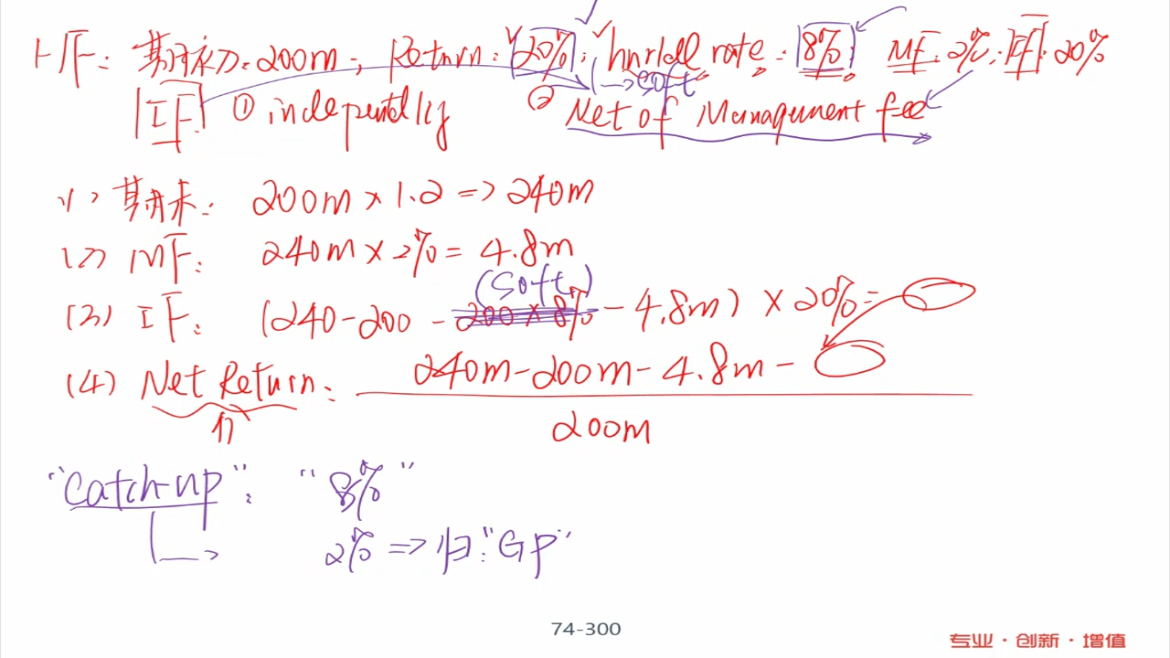 HF: 期初: 200m; Return: 20%; hurdle rate: 8% MF: 2%; IF: 20%
→ soft
IF ① independently ② Net of Management fee
(1) 期末: 200m × 1.2 => 240m
(2) MF: 240m × 2% = 4.8m
(soft)
(3) IF: (240-200 - 200 × 8% - 4.8m) × 20% =
(4) Net Return: 240m-200m-4.8m-
200m
"Catch-up": "8%"
2% => 归: "GP"
74-300
专业·创新·增值